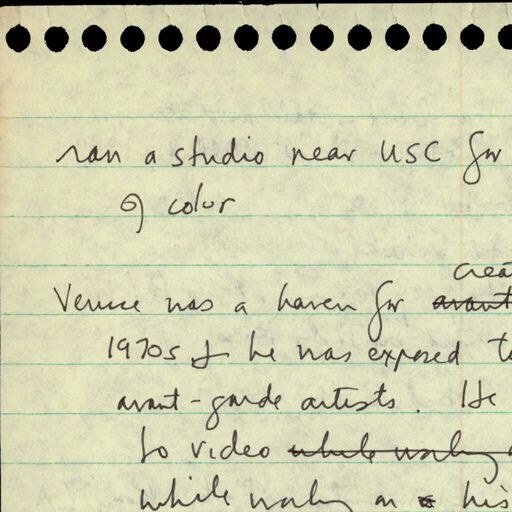 ran a studio near USC for
of color
crea
Venice was a haven for avant
1970s & he was exposed to
avant-garde artists. He
to video while working
while working on a his